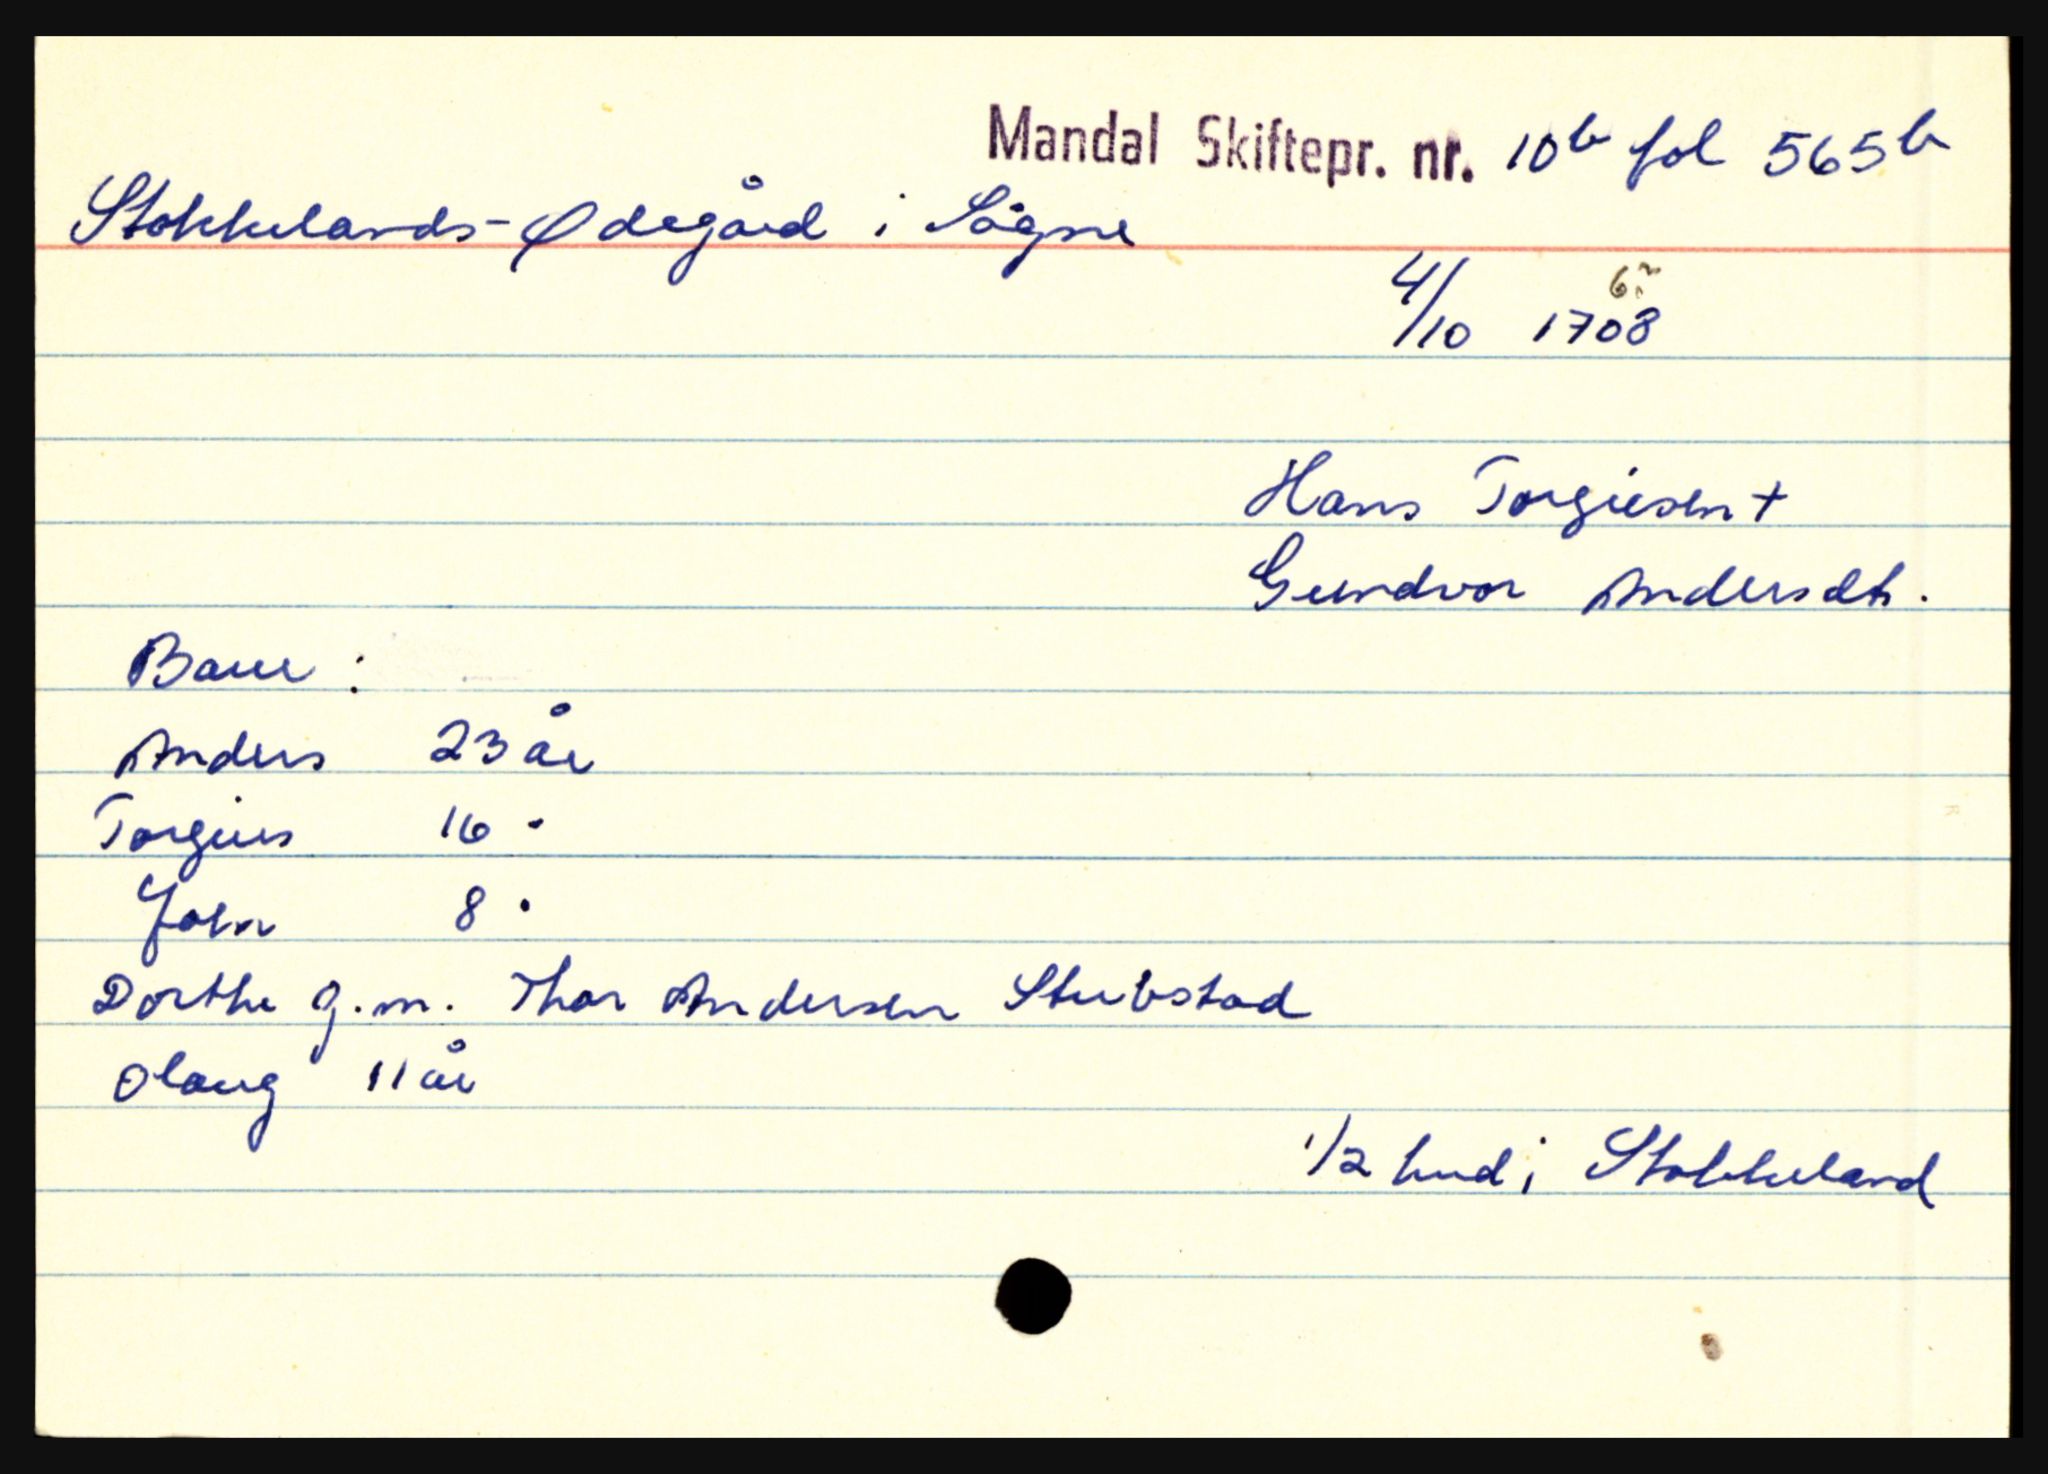 Mandal Skiftepr. nr. 10b fol 565b
Stokkelands-Ødegård i Søgne
6?
4/10 1708
Hans Torgiesen +
Gundvor Andersdt.
Barn :
Anders 23 år
Torgius 16 "
John 8 "
Dorthe g.m. Thor Andersen Stubstad
Olaug 11 år
1/2 hud i Stokkeland